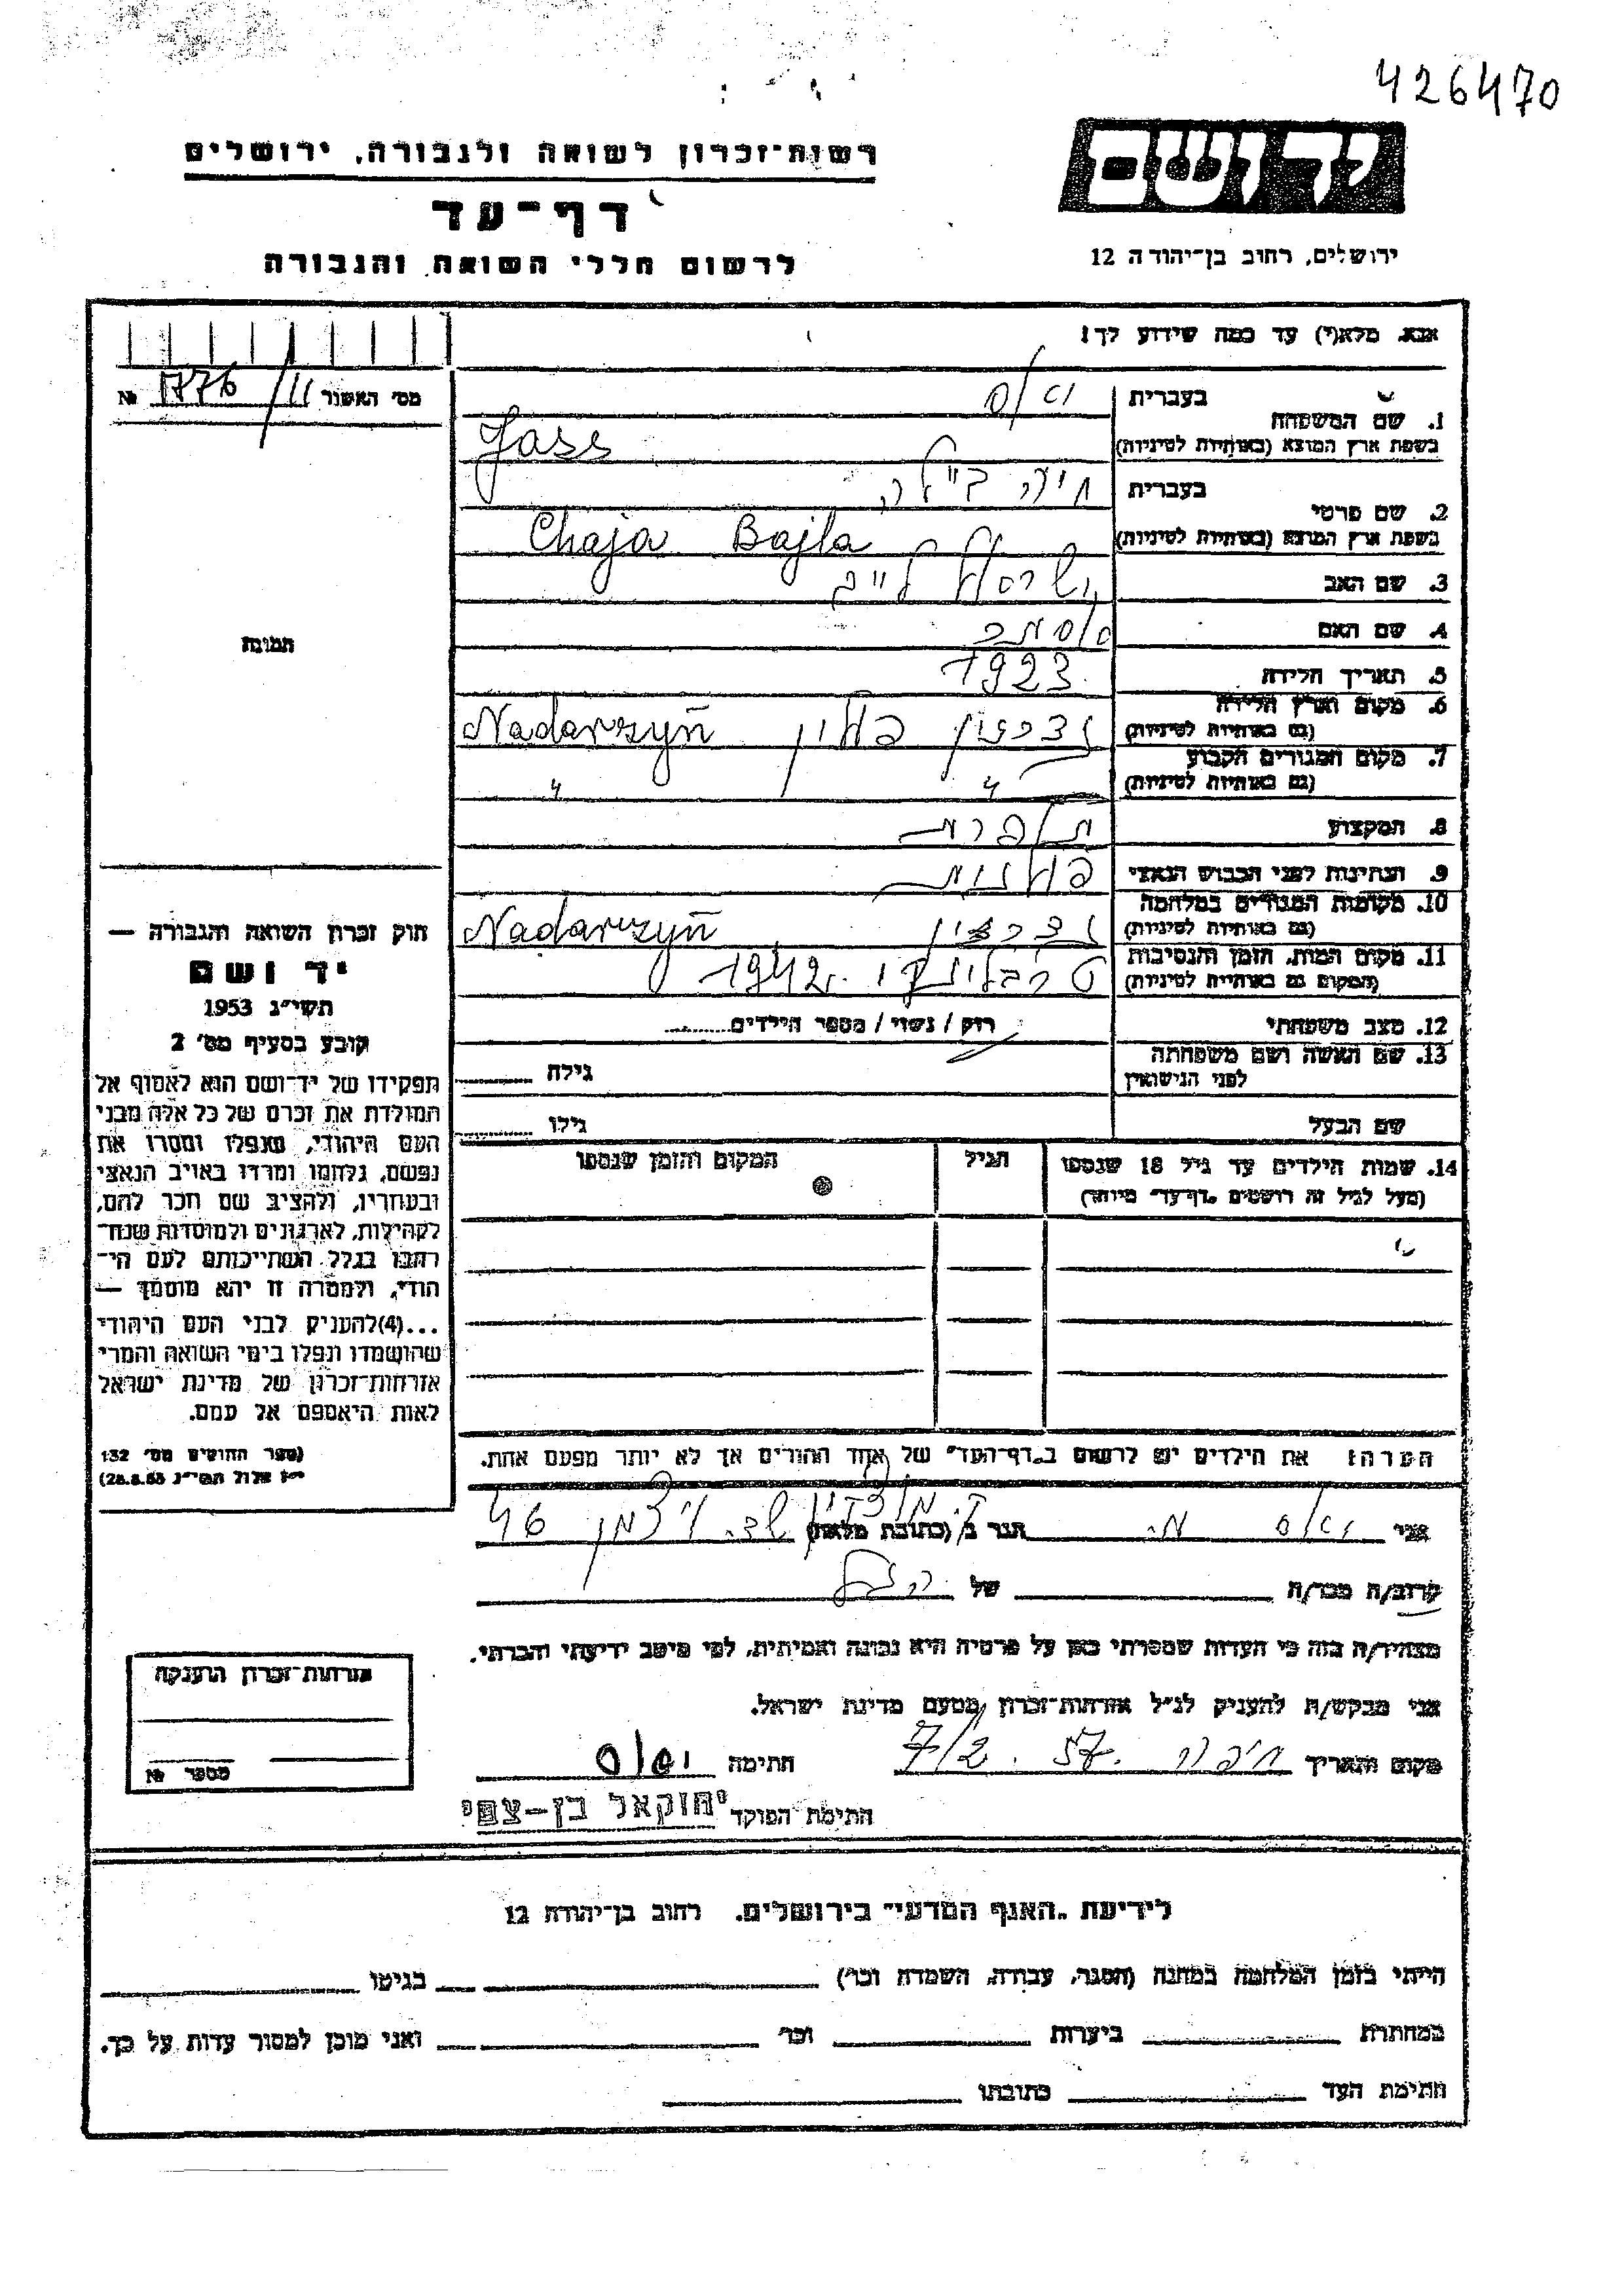 426470
יד ושם
ירושלים, רחוב בן־יהודה 12
רשות־זכרון לשואה ולגבורה, ירושלים
דף־עד
לרשום חללי השואה והגבורה
אנא, מלא(י) עד כמה שידוע לך!
מס׳ האשור 11/1776 №
1. שם המשפחה
בעברית
בשפת ארץ המוצא (באותיות לטיניות) Jass
2. שם פרטי
בעברית חיה ביילה
בשפת ארץ המוצא (באותיות לטיניות) Chaja Bajla
3. שם האב ישראל לייב
4. שם האם
5. תאריך הלידה 1923
6. מקום וארץ הלידה
(גם באותיות לטיניות) פולין Nadarzyń
7. מקום המגורים הקבוע
(גם באותיות לטיניות) " "
8. המקצוע תופרת
9. הנתינות לפני הכבוש הנאצי פולנית
10. מקומות המגורים במלחמה
(גם באותיות לטיניות) Nadarzyń
11. מקום המות, הזמן והנסיבות
(המקום גם באותיות לטיניות) טרבלינקי 1942
12. מצב משפחתי רווק / נשוי / מספר הילדים
13. שם האשה ושם משפחתה
לפני הנישואין גילה
שם הבעל גילו
14. שמות הילדים עד גיל 18 שנספו
(מעל לגיל זה רושמים „דף־עד״ מיוחד)
הגיל
המקום והזמן שנספו
הערה: את הילדים יש לרשום ב„דף־העד״ של אחד ההורים אך לא יותר מפעם אחת.
תמונה
חוק זכרון השואה והגבורה —
יד ושם
תשי״ג 1953
קובע בסעיף מס׳ 2
תפקידו של יד־ושם הוא לאסוף אל
המולדת את זכרם של כל אלה מבני
העם היהודי, שנפלו ומסרו את
נפשם, נלחמו ומרדו באויב הנאצי
ובעוזריו, ולהציב שם וזכר להם,
לקהילות, לארגונים ולמוסדות שנח־
רבו בגלל השתייכותם לעם הי־
הודי, ולמטרה זו יהא מוסמך —
...(4) להעניק לבני העם היהודי
שהושמדו ונפלו בימי השואה והמרי
אזרחות־זכרון של מדינת ישראל
לאות היאספם אל עמם.
(ספר החוקים מס׳ 132
י״ז אלול תשי״ג 28.8.53)
אני הגר ב/ (כתובת מלאה) 46
קרוב/ה מכר/ה של הנ״ל
מצהיר/ה בזה כי העדות שמסרתי כאן על פרטיה היא נכונה ואמיתית, לפי מיטב ידיעתי והכרתי.
אני מבקש/ת להעניק לנ״ל אזרחות־זכרון מטעם מדינת ישראל.
מקום ותאריך חיפה 7/2.57 חתימה
חתימת הפוקד יחזקאל בן-צפי
אזרחות־זכרון הוענקה
מספר №
לידיעת „האגף המדעי״ בירושלים, רחוב בן־יהודה 12
הייתי בזמן המלחמה במחנה (הסגר, עבודה, השמדה וכו׳) בגיטו
במחתרת ביערות וכו׳ ואני מוכן למסור עדות על כך.
חתימת העד כתובתו